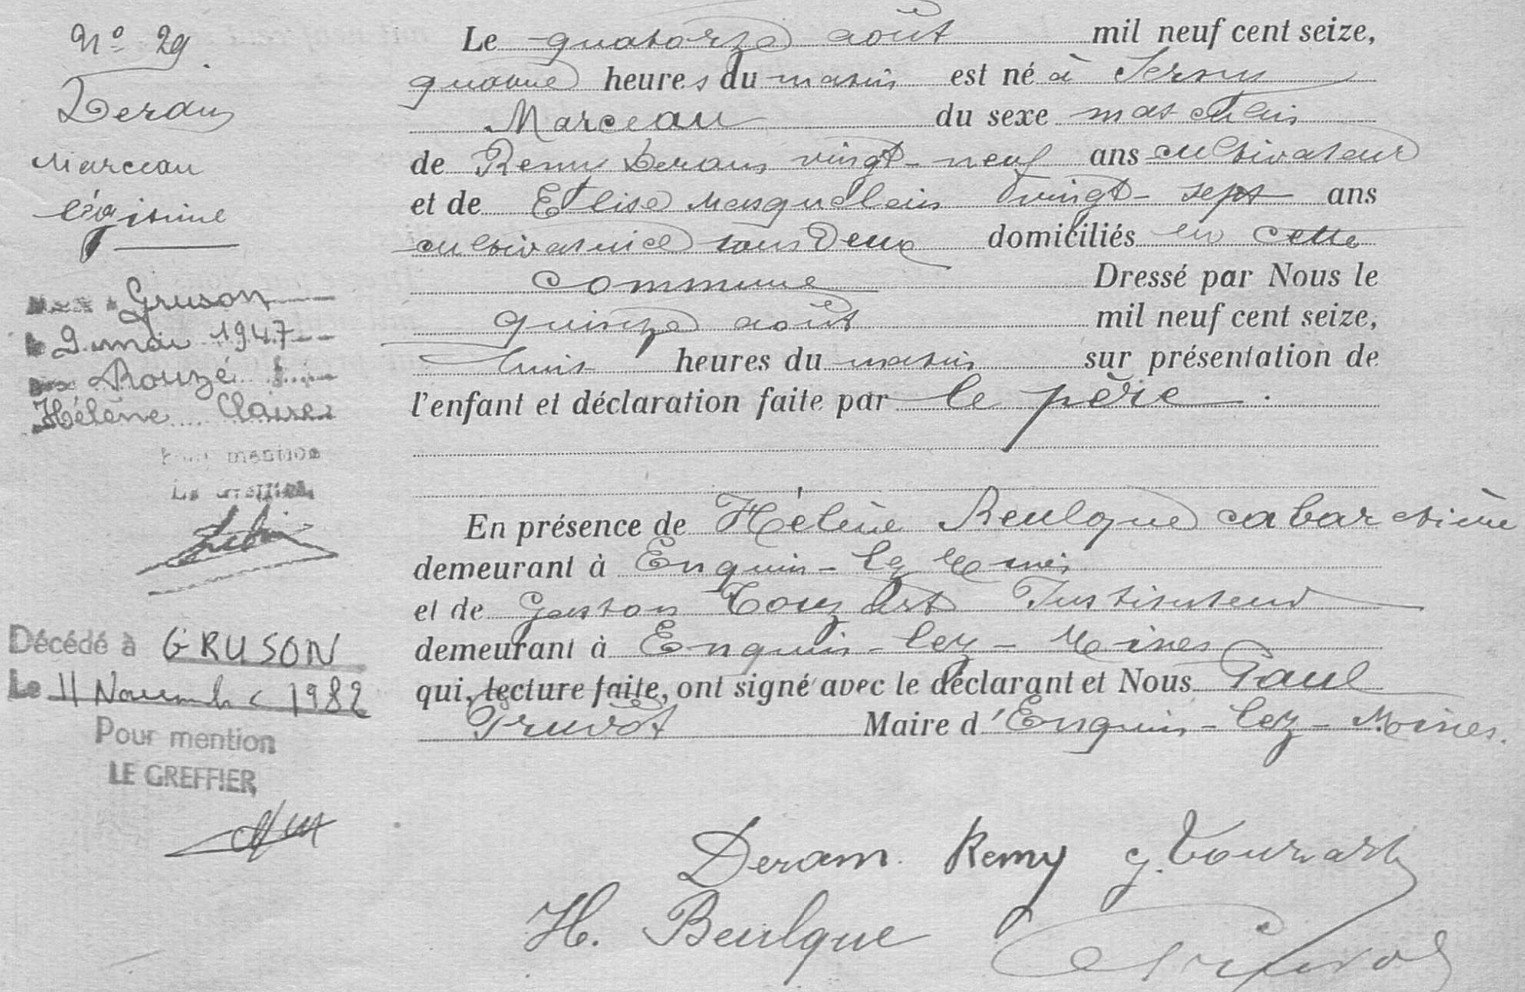 N° 29
Deram
Marceau
légitime
Gruson
le 9 mai 1947
Rouzé
Hélène Claire
Pour mention
Le Greffier
Décédé à GRUSON
Le 11 Novembre 1982
Pour mention
LE GREFFIER
Le quatorze août mil neuf cent seize,
heures du matin est né à Serny
Marceau du sexe masculin
de Remy Deram vingt-neuf ans cultivateur
et de Elise Masquelein vingt-sept ans
cultivatrice tous deux domiciliés en cette
commune Dressé par Nous le
quinze août mil neuf cent seize,
huit heures du matin sur présentation de
l'enfant et déclaration faite par le père.
En présence de Hélène Beulque cabaretière
demeurant à Enquin-lez-Mines
et de Gaston Instituteur
demeurant à Enquin-lez-Mines
qui, lecture faite, ont signé avec le déclarant et Nous Paul
Pruvôt Maire d'Enquin-lez-Mines.
Deram Remy g.
H. Beulque Pruvot